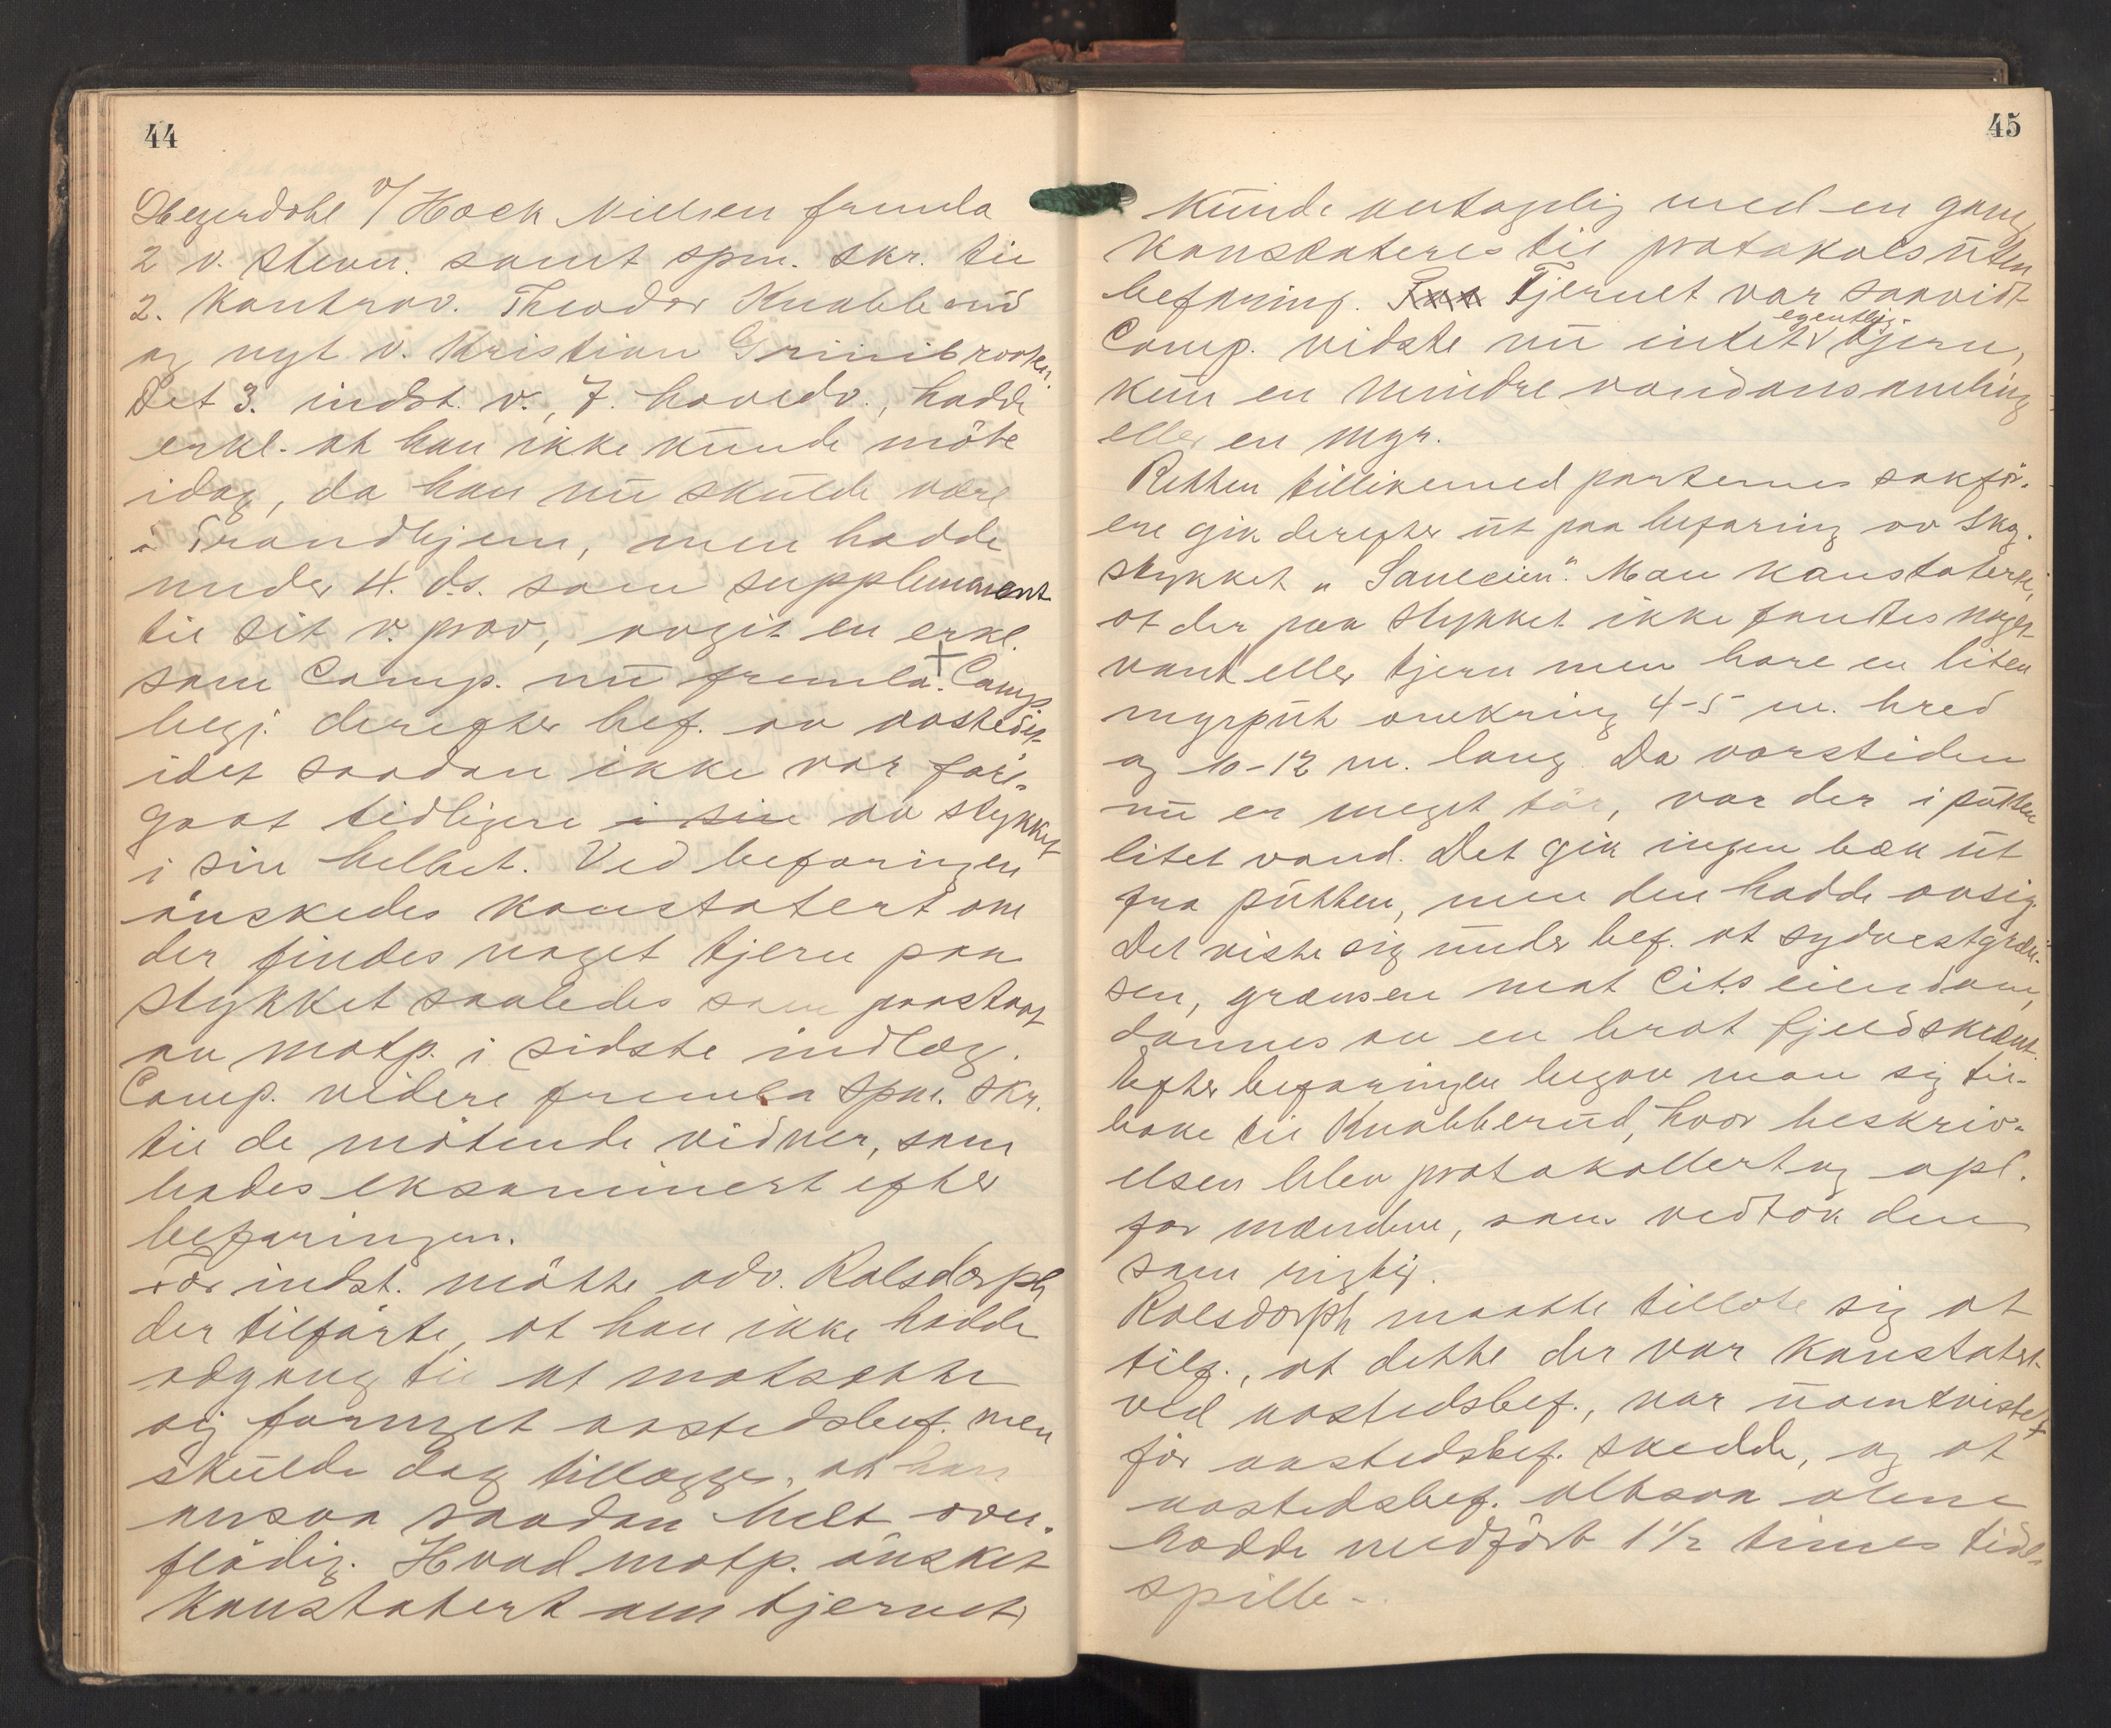 44
Hegerdahl v/ Hoek Nielsen fremla
2 v. stevn. samt spm. skr. til
2. kontrav. Theodor Knabberud
og nyt v. Kristian Grinibraaten.
Det 3. indst. v., 7. hovedv., hadde
erkl. at han ikke kunde møte
idag, da han nu skulde være
i Trondhjem, men hadde
under 4. ds. som supplement
til sit v. prov, avgit en erkl.
som Comp. nu fremla. + Comp.
begj. derefter bef. av aastedet
idet saadan ikke var fore-
gaat tidligere i sin av stykket
i sin helhet. Ved befaringen
ønskedes konstatert om
der findes noget tjern paa
stykket saaledes som paastaat
av motp. i sidste indlæg.
Comp. videre fremla spm. skr.
til de møtende vidner, som
bades eksaminert efter
befaringen.
For indst. møtte adv. Rolsdorph
der tilførte, at han ikke hadde
adgang til at motsætte
sig forlanget aastedsbef. men
skulde dog tillægge, at han
ansaa saadan helt over-
flødig. Hvad motp. ønsket
konstatert om tjernet,
45
kunde antagelig med en gang
konstateres til protokols uten
befaring. Tjernet var saavidt
egentlig
Comp. vidste nu intet tjern,
kun en mindre vandansamling
eller en myr.
Retten tillikemed parternes sakfør-
ere gik derefter ut paa befaring av skog-
stykket "                ". Man konstaterte,
at der paa stykket ikke fandtes noget
vand eller tjern men bare en liten
myrput omkring 4-5 m. bred
og 10-12 m. lang. Da vaarstiden
nu er meget tør, var der i putten
litet vand. Det gik ingen bæk ut
fra putten, men den hadde avsig.
Det viste sig under bef. at sydvestgræn-
sen, grænsen mot Cits eiendom,
dannes av en brat fjeldskrænt.
Efter befaringen begav man sig til-
bake til Knabberud, hvor beskriv-
elsen blev protokollert og opl.
for mændene, som vedtok den
som rigtig.
Rolsdorph maatte tillate sig at
tilf., at dette der var konstatert
ved aastedsbef., var uomtvistet
før aastedsbef. skedde, og at
aastedsbef. altsaa alene
hadde medført 1½ times tids-
spille.-